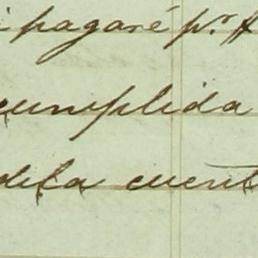 i pagaré pr. A
cumplida
dita cuent